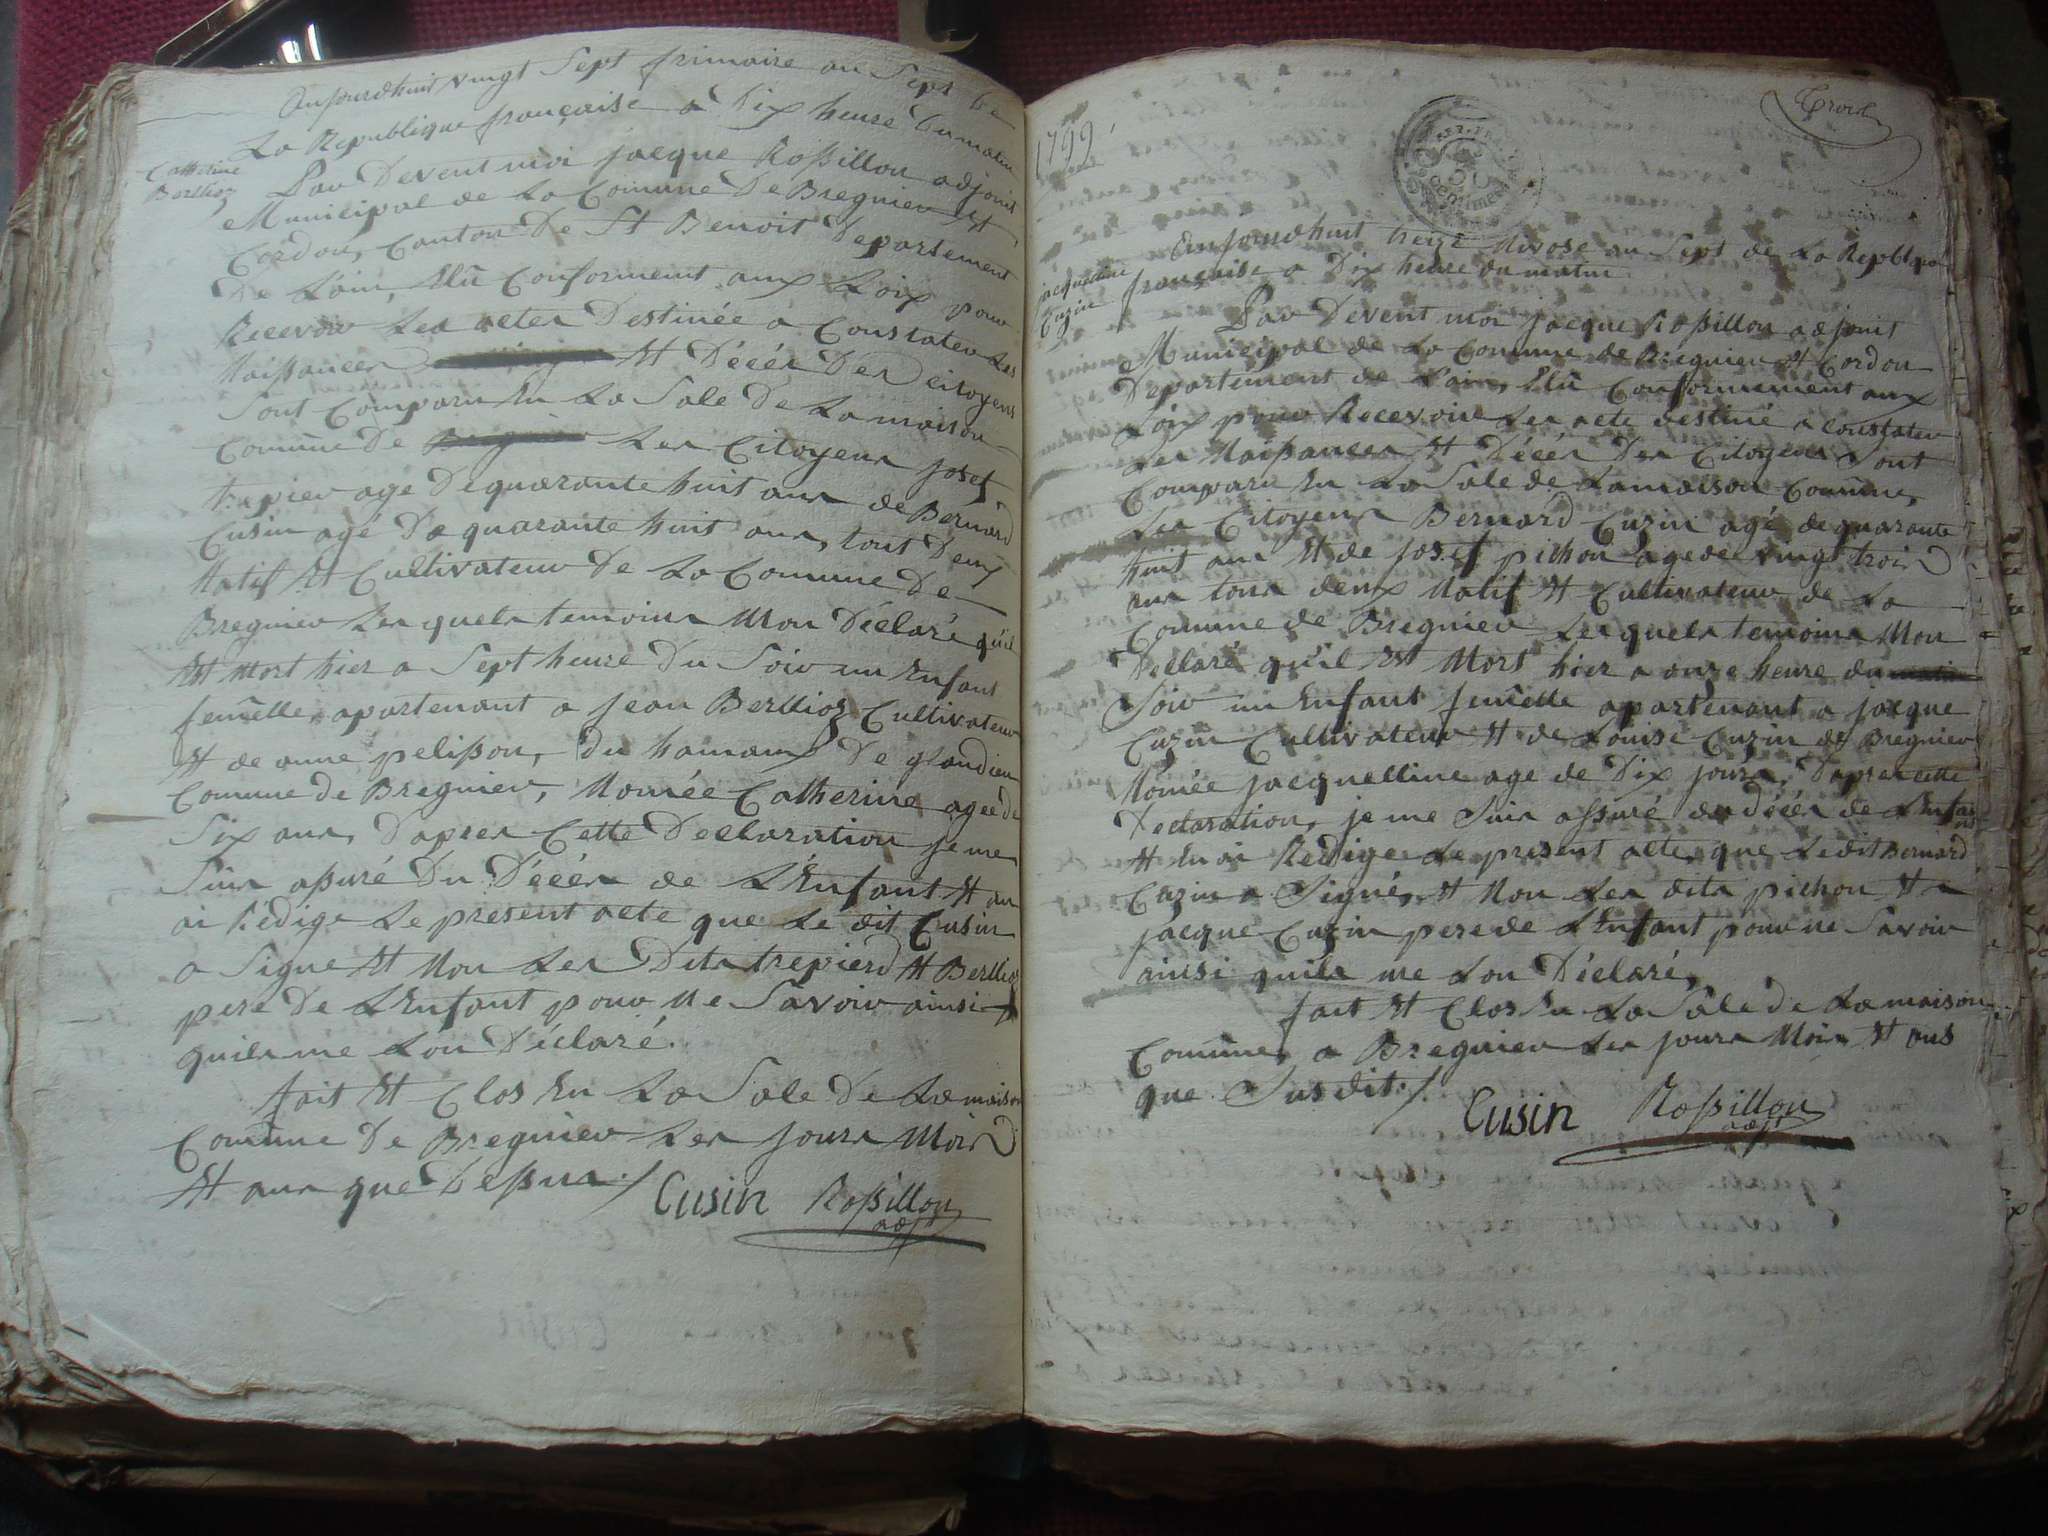 Aujourdhuit vingt Sept frimaire an Sept de
La Republique françoise a Dix heure Du matin
Catherine
Berllioz
Par Devent moi jacque Roßillon adjoint
Municipal de La Commune De Bregnier Et
Cordon, Canton De St Benoit Departement
De Lain, Elû Conforment aux Loix pour
Recevoir Les actes Destinée a Constater Les
Naißances Et Décés Des Citoyens
Sont Comparu En La Sale De La maison
Comûne De Les Citoyens josef
trepier age De quarante huit ans de Bernard
Cusin agé De quarante huit ans, tout Deux
Natif Et Cultivateur De La Commune De
Bregnier Les quels temoins Mon Déclaré quil
Et mort hier a Sept heure Du Soir un Enfant
femêlle, apartenant a jean Berllioz Cultivateur
Et de anne pelißon, du hamaux De glandieu
Commune de Bregnier, Nomée Catherine agee de
Six ans, Dapres Cette Declaration je me
Suis aßuré Du Décés de LEnfant Et an
ai Rédige Le present acte que Le dit Cusin
a Signe Et Non Les Dits trepierd Et Berllioz
pere De LEnfant pour Ne Savoir ainsi
quils me Lon Déclaré.
fait Et Clos En La Sale De La maison
Comûne De Bregnier Les jours Mois
Et ans que Deßus./ Cusin Roßillon
adjt
1799
Trois
Aujourdhuit treize Nivose an Sept de La Republique
françoise a Dix heure du matin
jacquelline
Cuzin
Par Devent moi jacque Roßillon adjoint
Municipal de La Commune de Bregnier Et Cordon
Departement de Lain, Elû Conformement aux
Loix pour Recevoire Les acte destiné a Constater
Les Naißances Et Décés Des Citoyens Sont
Comparu En La Sale de La maison Comûne,
Les Citoyens Bernard Cuzin agé de quarante
huit ans Et de josef pichon age de vingt trois
ans tous deux Natif Et Cultivateur de La
Comûne de Bregnier Les quels temoins Mon
Déclaré quil Est Mort hier a onze heure du matin
Soir un Enfant femêlle apartenant a jacque
Cuzin Cultivateur Et de Louise Cuzin de Bregnier
Nomée jacquelline age de Dix jours, Dapres cette
Declaration, je me Suis aßuré du décés de LEnfant
Et En ai Redige Le present acte que Le dit Bernard
Cuzin a Signé, Et Non Les dits pichon Et
jacque Cuzin pere de LEnfant pour ne Savoir
ainsi quils me Lon Déclaré,
fait Et Clos En La Sale de La maison
Comûne, a Bregnier Les jours Mois Et ans
que Susdit./ Cusin Roßillon
adjt